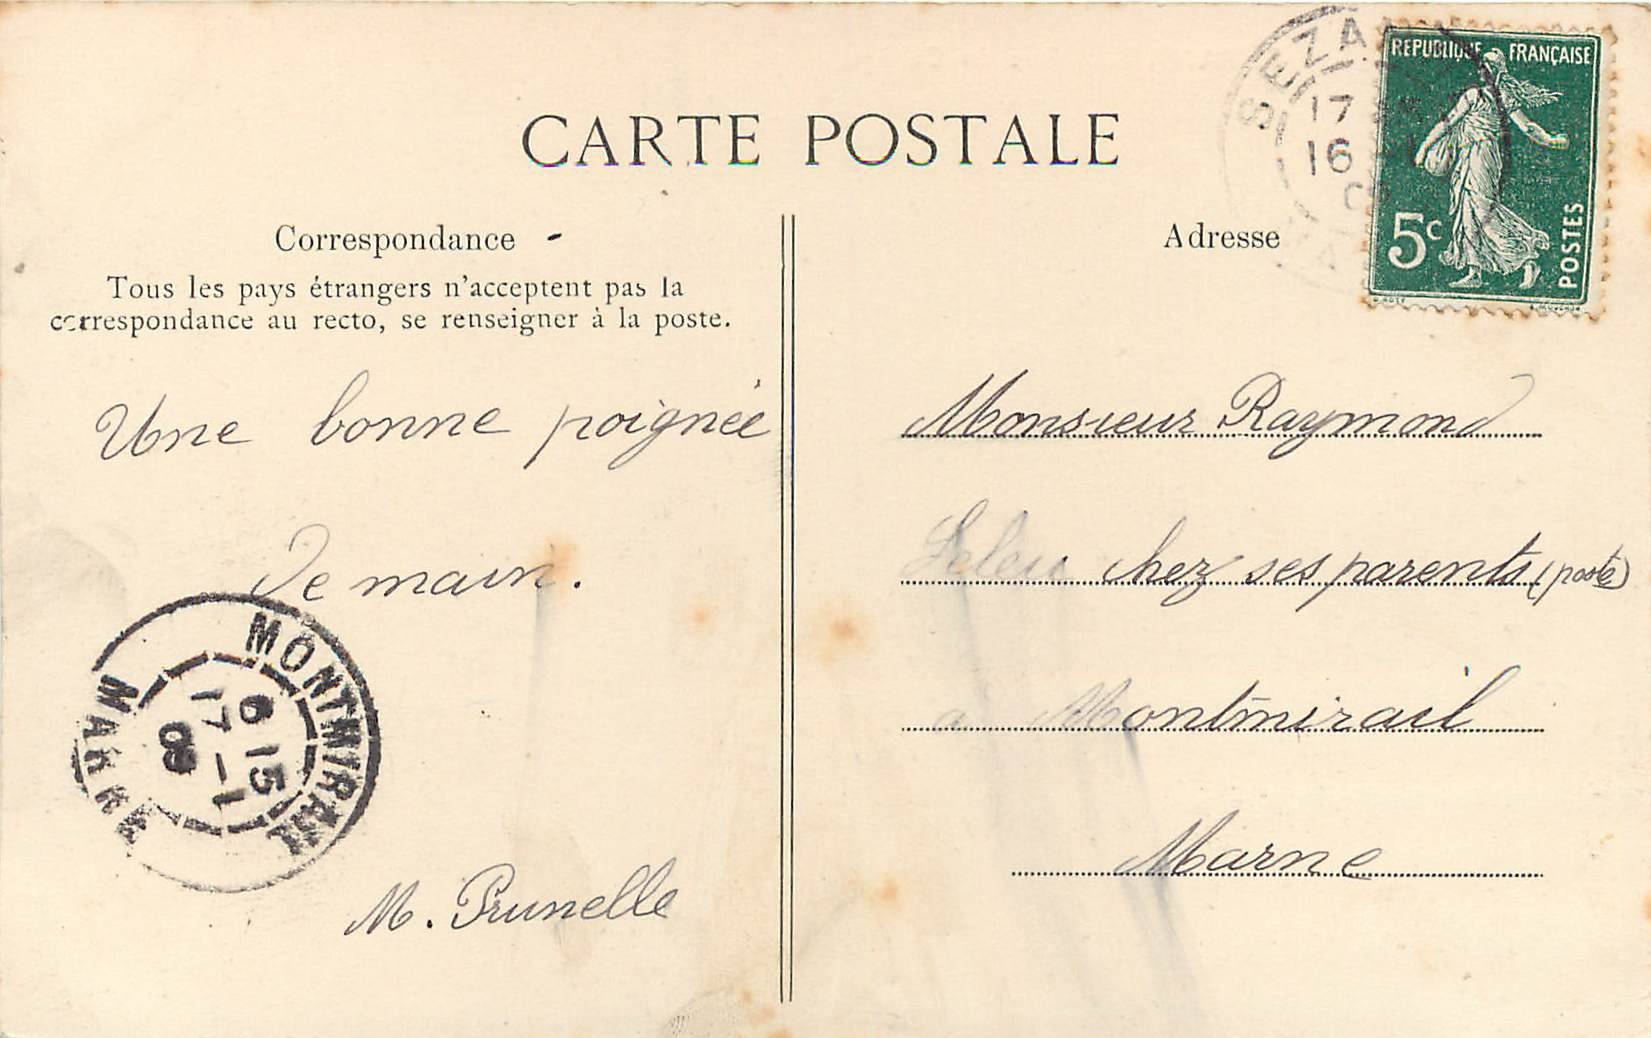 CARTE POSTALE
Correspondance
Tous les pays étrangers n'acceptent pas la
correspondance au recto, se renseigner à la poste.
Une bonne poignée
de main.
M. Prunelle
MONTMIRAIL
6 15
17 - 1
09
MARNE
Adresse
Monsieur Raymond
Leleu chez ses parents (poste)
a Montmirail
Marne
SEZA
17
16
REPUBLIQUE FRANÇAISE
5c
POSTES